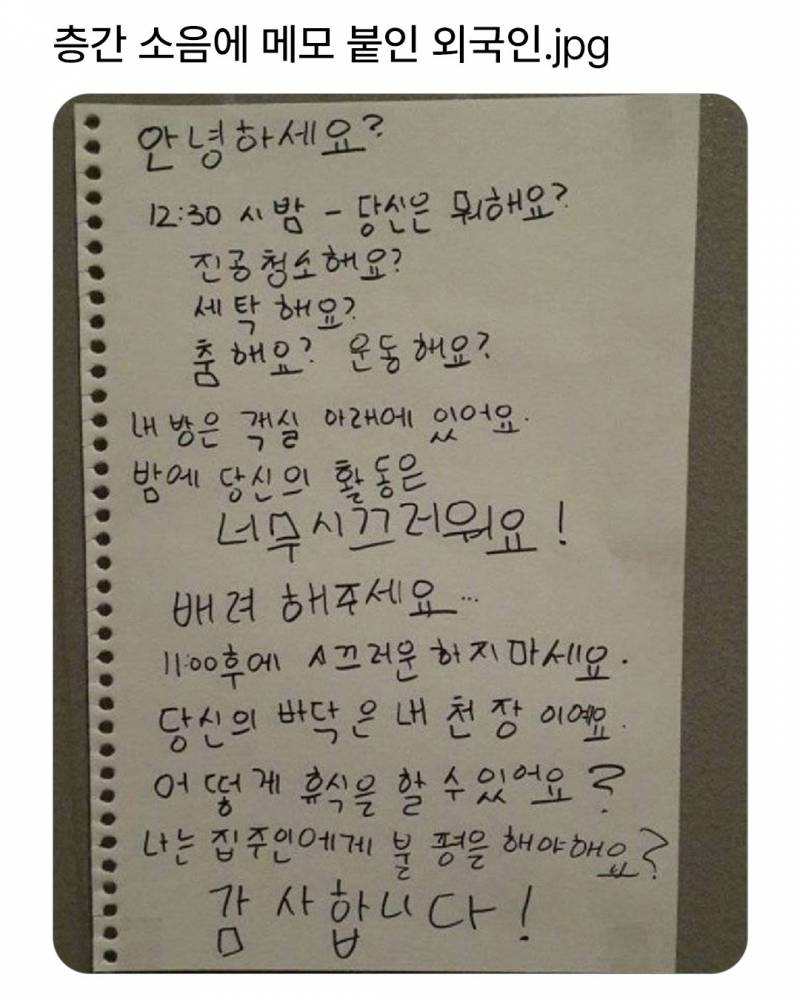 층간 소음에 메모 붙인 외국인.jpg
안녕하세요?
12:30 시 밤 - 당신은 뭐해요?
진공청소해요?
세탁해요?
춤해요? 운동해요?
내 방은 객실 아래에 있어요.
밤에 당신의 활동은
너무시끄러워요!
배려 해주세요...
11:00후에 시끄러운 하지마세요.
당신의 바닥은 내 천장이예요.
어떻게 휴식을 할 수 있어요?
나는 집주인에게 불평을 해야해요?
감사합니다!